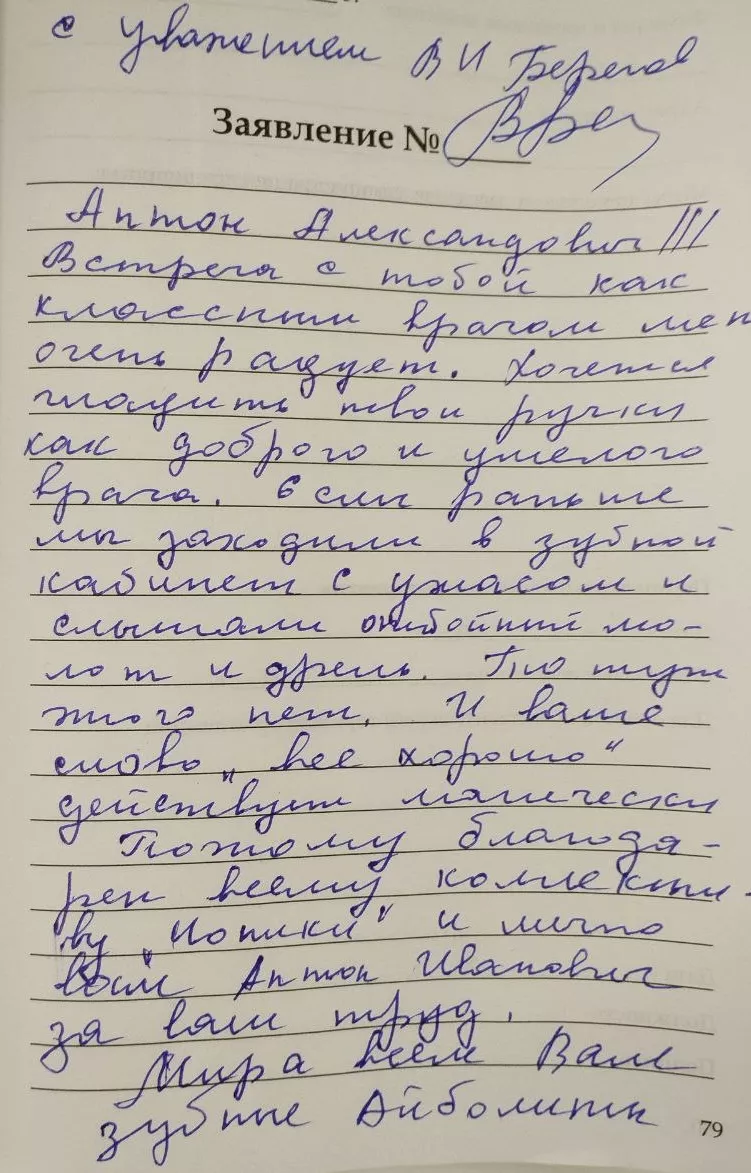 с уважением В И Берегов
Заявление №
Антон Александович!!!
Встреча с тобой как
классным врачом мен
очень радует. Хочется
гладить твои ручки
как доброго и умелого
врача. Если раньше
мы заходили в зубной
кабинет с ужасом и
слышали отбойный мо-
лот и дрель. То тут
этого нет. И ваше
слово „все хорошо“
действует магически
Поэтому благода-
рен всему коллекти-
ву и лично
Вам Антон Иванович
за ваш труд.
Мира всем Вам
зубные Айболиты
79